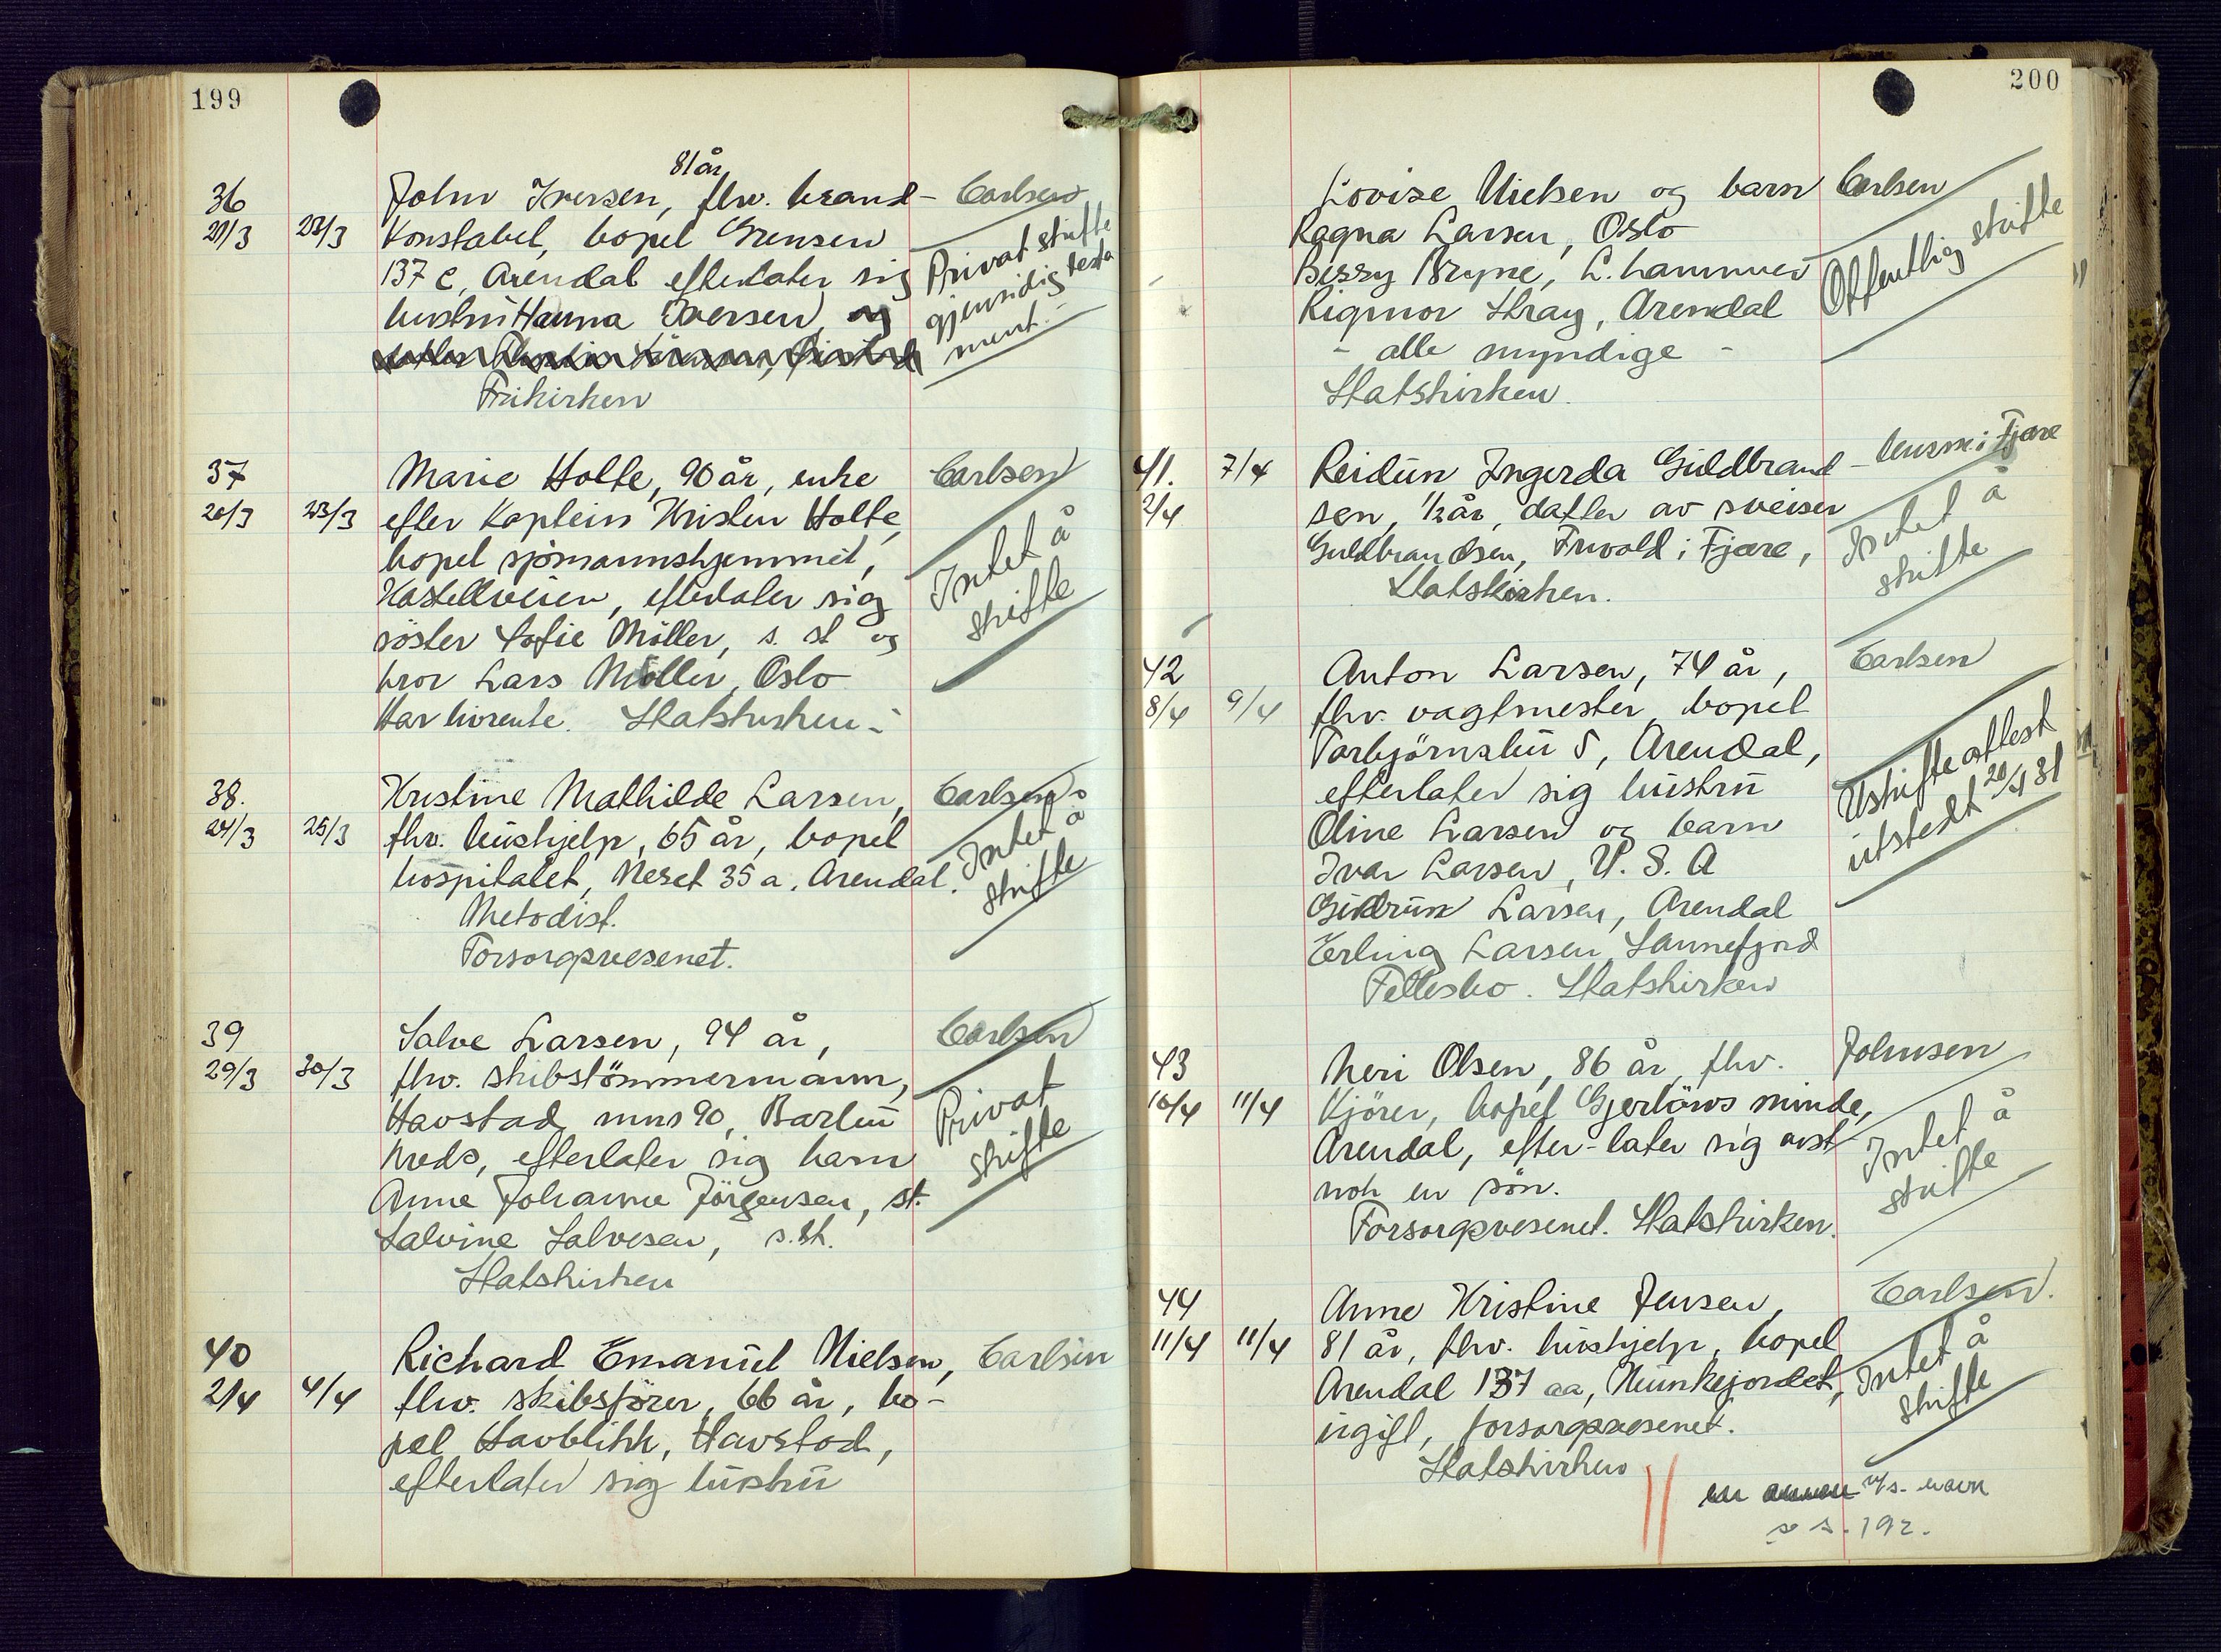 199
81 år
36 John Iversen, fhv. brand- Carlsen
21/3 23/3 konstabel, bopel Grensen
137 c, Arendal efterlater sig Privat skifte
hustru Hanna Iversen og gjensidig testa
ment.
Frikirken
37 Marie Holte, 90 år, enke Carlsen
20/3 23/3 efter kaptein Kristen Holte,
bopel sjömannshjemmet, Intet å
Kastellveien, efterlater sig skifte
söster Sofie Möller, s. st og
bror Lars Möller, Oslo
Har livrente. Statskirken.
38. Kristine Mathilde Larsen, Carlsen
24/3 25/3 fhv. hushjelp, 65 år, bopel Intet å
hospitalet, Neset 35 a, Arendal. skifte
Metodist.
Forsorgsvesenet.
39 Salve Larsen, 94 år, Carlsen
29/3 30/3 fhv. skibstömmermann,
Havstad mnr 90, Barbu Privat
krets, efterlater sig barn skifte
Anne Johanne Jörgensen, st.
Salvine Salvesen, s. st.
Statskirken
40 Richard Emanuel Nielsen, Carlsen
2/4 4/4 fhv. skibsförer, 66 år, bo-
pel Havblikk, Havstad,
efterlater sig hustru
200
Lovise Nielsen og barn Carlsen
Ragna Larsen, Oslo
Bessy Bryne, L.hammer Offentlig skifte
Rigmor Stray, Arendal
- alle myndige -
Statskirken.
41. 7/4 Reidun Ingerda Guldbrand- i Fjære
2/4 sen, 1/2 år, datter av sveiser Intet å
Guldbrandsen, Frivold i Fjære, skifte
Statskirken.
42 Anton Larsen, 74 år, Carlsen
8/4 9/4 fhv. vagtmester, bopel
Torbjörnsbu 5, Arendal, Uskifteattest
efterlater sig hustru utstedt 20/4 31
Oline Larsen og barn
Ivar Larsen, U. S. A
Gudrun Larsen, Arendal
Erling Larsen, Sannefjord
Fellesbo. Statskirken
43 Neri Olsen, 86 år, fhv. Johnsen
10/4 11/4 kjörer, bopel Gjerlöws minde,
Arendal, efter-later sig Intet å
nok en sön. skifte
Forsorgsvesenet. Statskirken.
44 Anne Kristine Jensen, Carlsen.
11/4 11/4 81 år, fhv. hushjelp, bopel
Arendal 137 aa, Munkejordet, Intet å
ugift, forsorgsvesenet. skifte
Statskirken
navn
se s. 192.